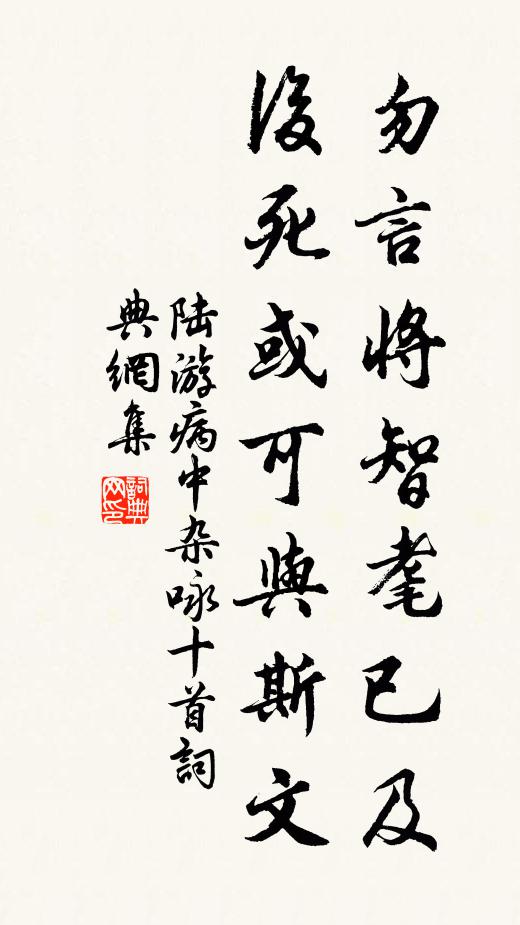 勿言將智耄已及
後死或可與斯文
陆游病中杂咏十首詞
典網集
詞典网印